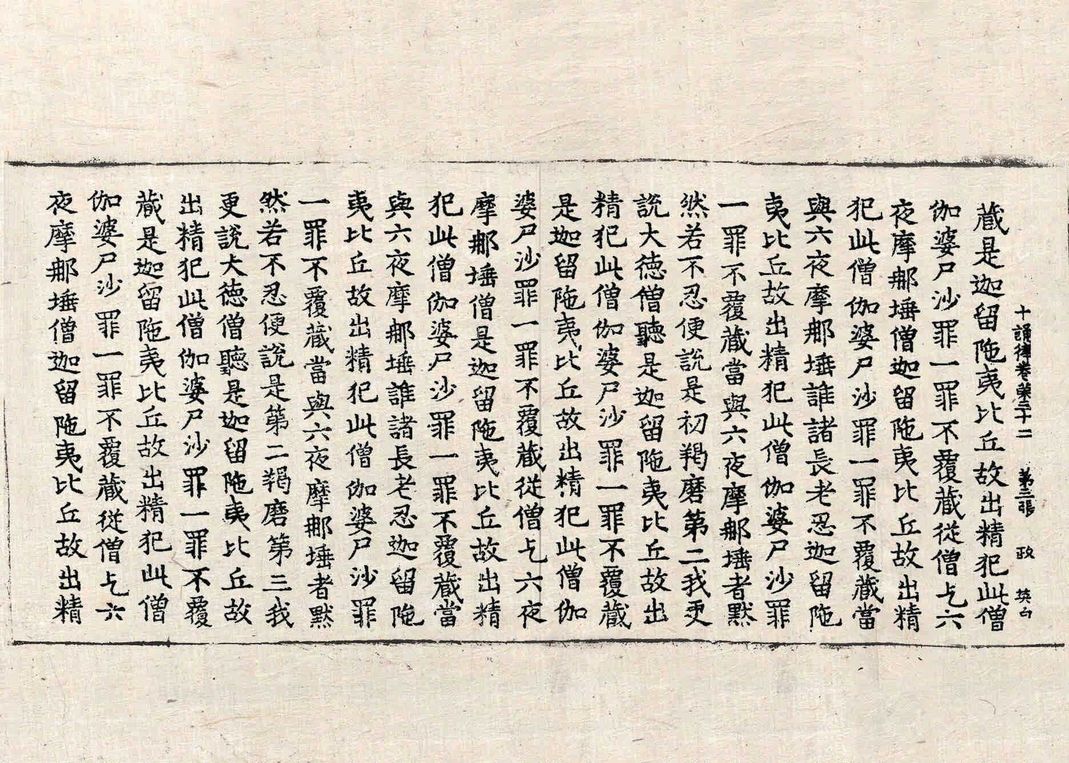 十誦律卷第三十二 第三張 政
藏是迦留陁夷比丘故出精犯此僧
伽婆尸沙罪一罪不覆藏從僧乞六
夜摩那埵僧迦留陁夷比丘故出精
犯此僧伽婆尸沙罪一罪不覆藏當
與六夜摩那埵誰諸長老忍迦留陁
夷比丘故出精犯此僧伽婆尸沙罪
一罪不覆藏當與六夜摩那埵者默
然若不忍便說是初羯磨第二我更
說大德僧聽是迦留陁夷比丘故出
精犯此僧伽婆尸沙罪一罪不覆藏
是迦留陁夷比丘故出精犯此僧伽
婆尸沙罪一罪不覆藏從僧乞六夜
摩那埵僧是迦留陁夷比丘故出精
犯此僧伽婆尸沙罪一罪不覆藏當
與六夜摩那埵誰諸長老忍迦留陁
夷比丘故出精犯此僧伽婆尸沙罪
一罪不覆藏當與六夜摩那埵者默
然若不忍便說是第二羯磨第三我
更說大德僧聽是迦留陁夷比丘故
出精犯此僧伽婆尸沙罪一罪不覆
藏是迦留陁夷比丘故出精犯此僧
伽婆尸沙罪一罪不覆藏從僧乞六
夜摩那埵僧迦留陁夷比丘故出精